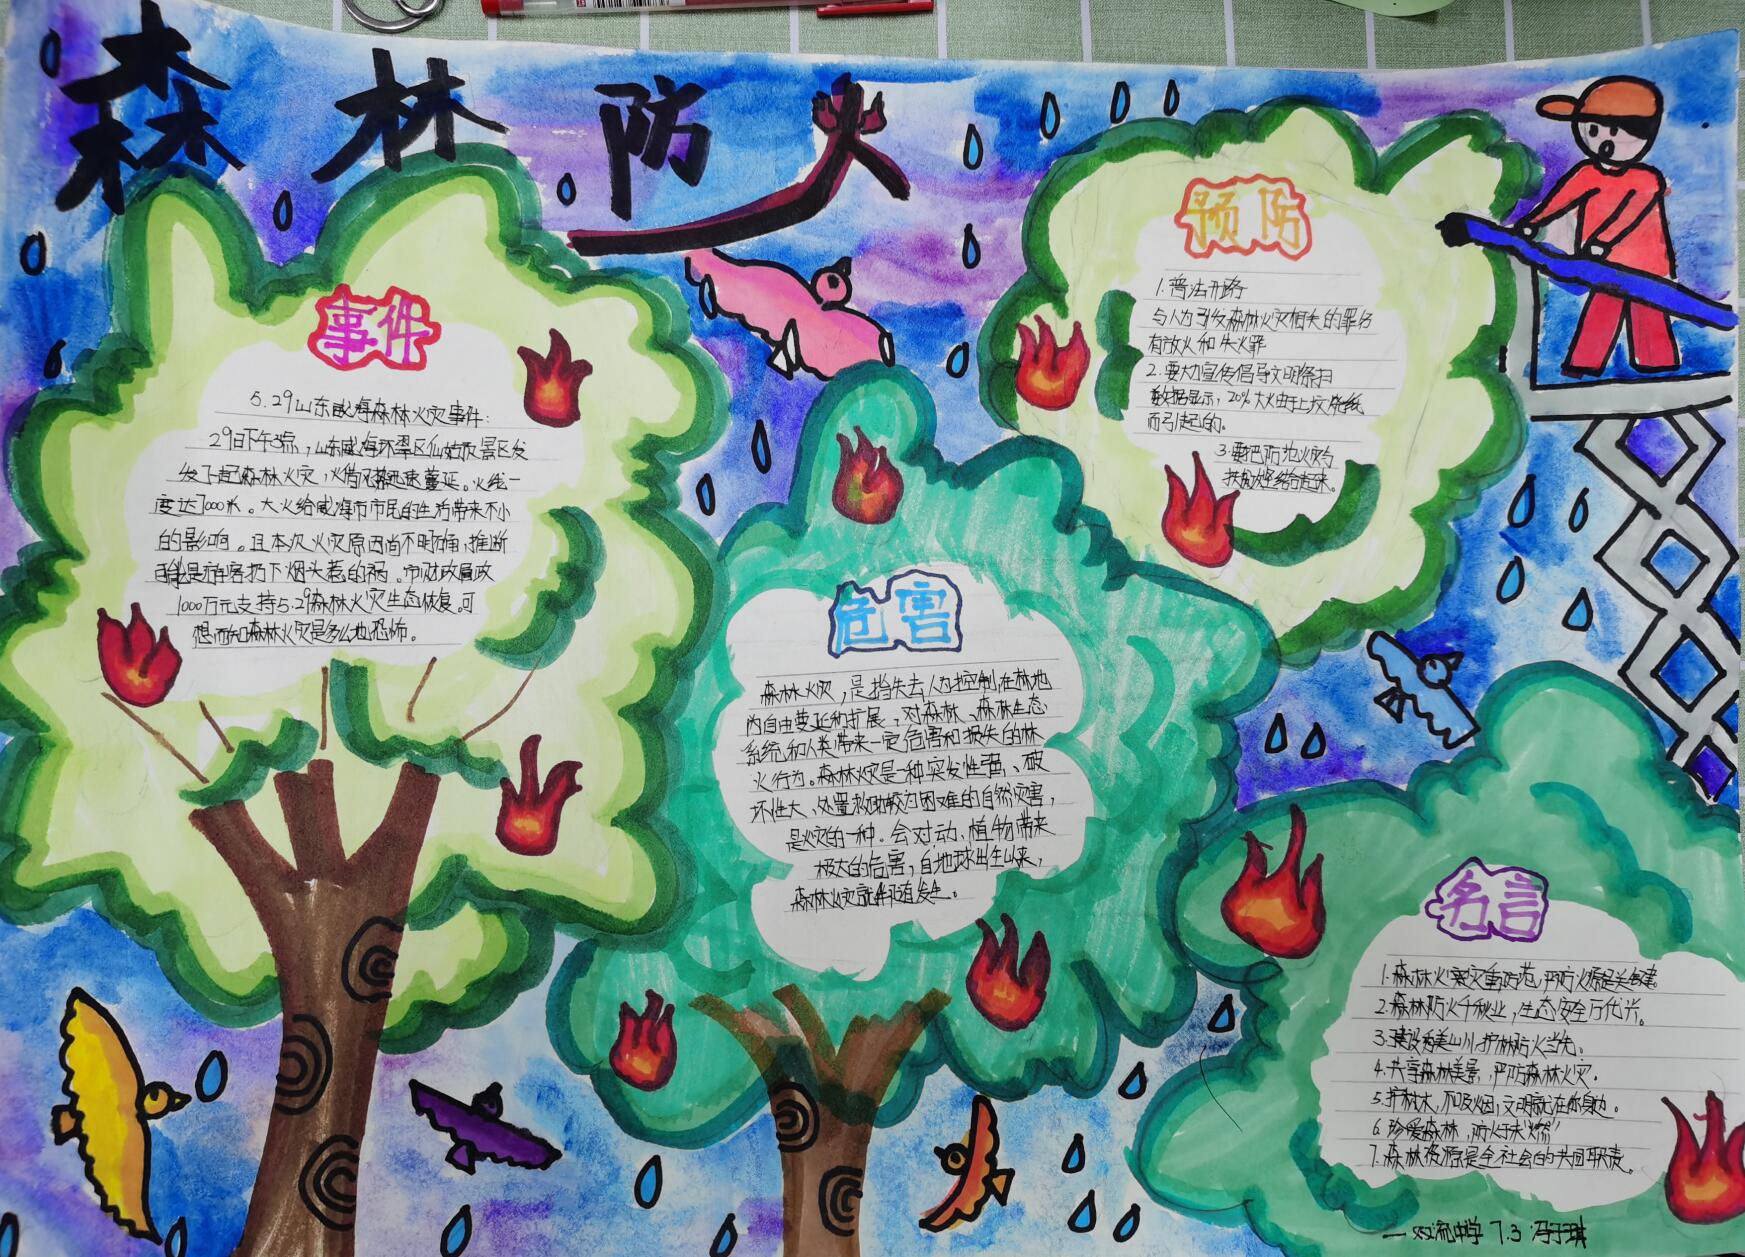 森林防火
事件
5.29山东威海森林火灾事件:
29日下午3点,山东威海环翠区仙姑顶景区发
发下起森林火灾,火借风势迅速蔓延。火线一
度达7000米。大火给威海市市民的生活带来不小
的影响。且本次火灾原因尚不明确,推断
可能是游客扔下烟头惹的祸。市财政局政
1000万元支持5.29森林火灾生态恢复。可
想而知森林火灾是多么地恐怖。
危害
森林火灾,是指失去人为控制在林地
内自由蔓延和扩展,对森林、森林生态
系统和人类带来一定危害和损失的林
火行为。森林火灾是一种突发性强、破
坏性大、处置救助较为困难的自然灾害,
是火灾的一种。会对动、植物带来
极大的危害,自地球出生以来,
森林火灾就年年发生。
预防
1.普法开路
与人为引发森林火灾相关的罪名
有放火和失火罪
2.要大力宣传倡导文明祭扫
数据显示,20%大火由于上坟烧纸
而引起的。
3.要把防范火灾与
结合起来。
名言
1.森林火灾重防范,严防火源是关键。
2.森林防火千秋业,生态安全万代兴。
3.建设秀美山川护林防火当先。
4.共享森林美景,严防森林火灾。
5.护树木,不吸烟,文明就在你身边。
6.珍爱森林,防火于未"燃"
7.森林资源是全社会的共同职责。
—双流中学 7.3 冯于琪